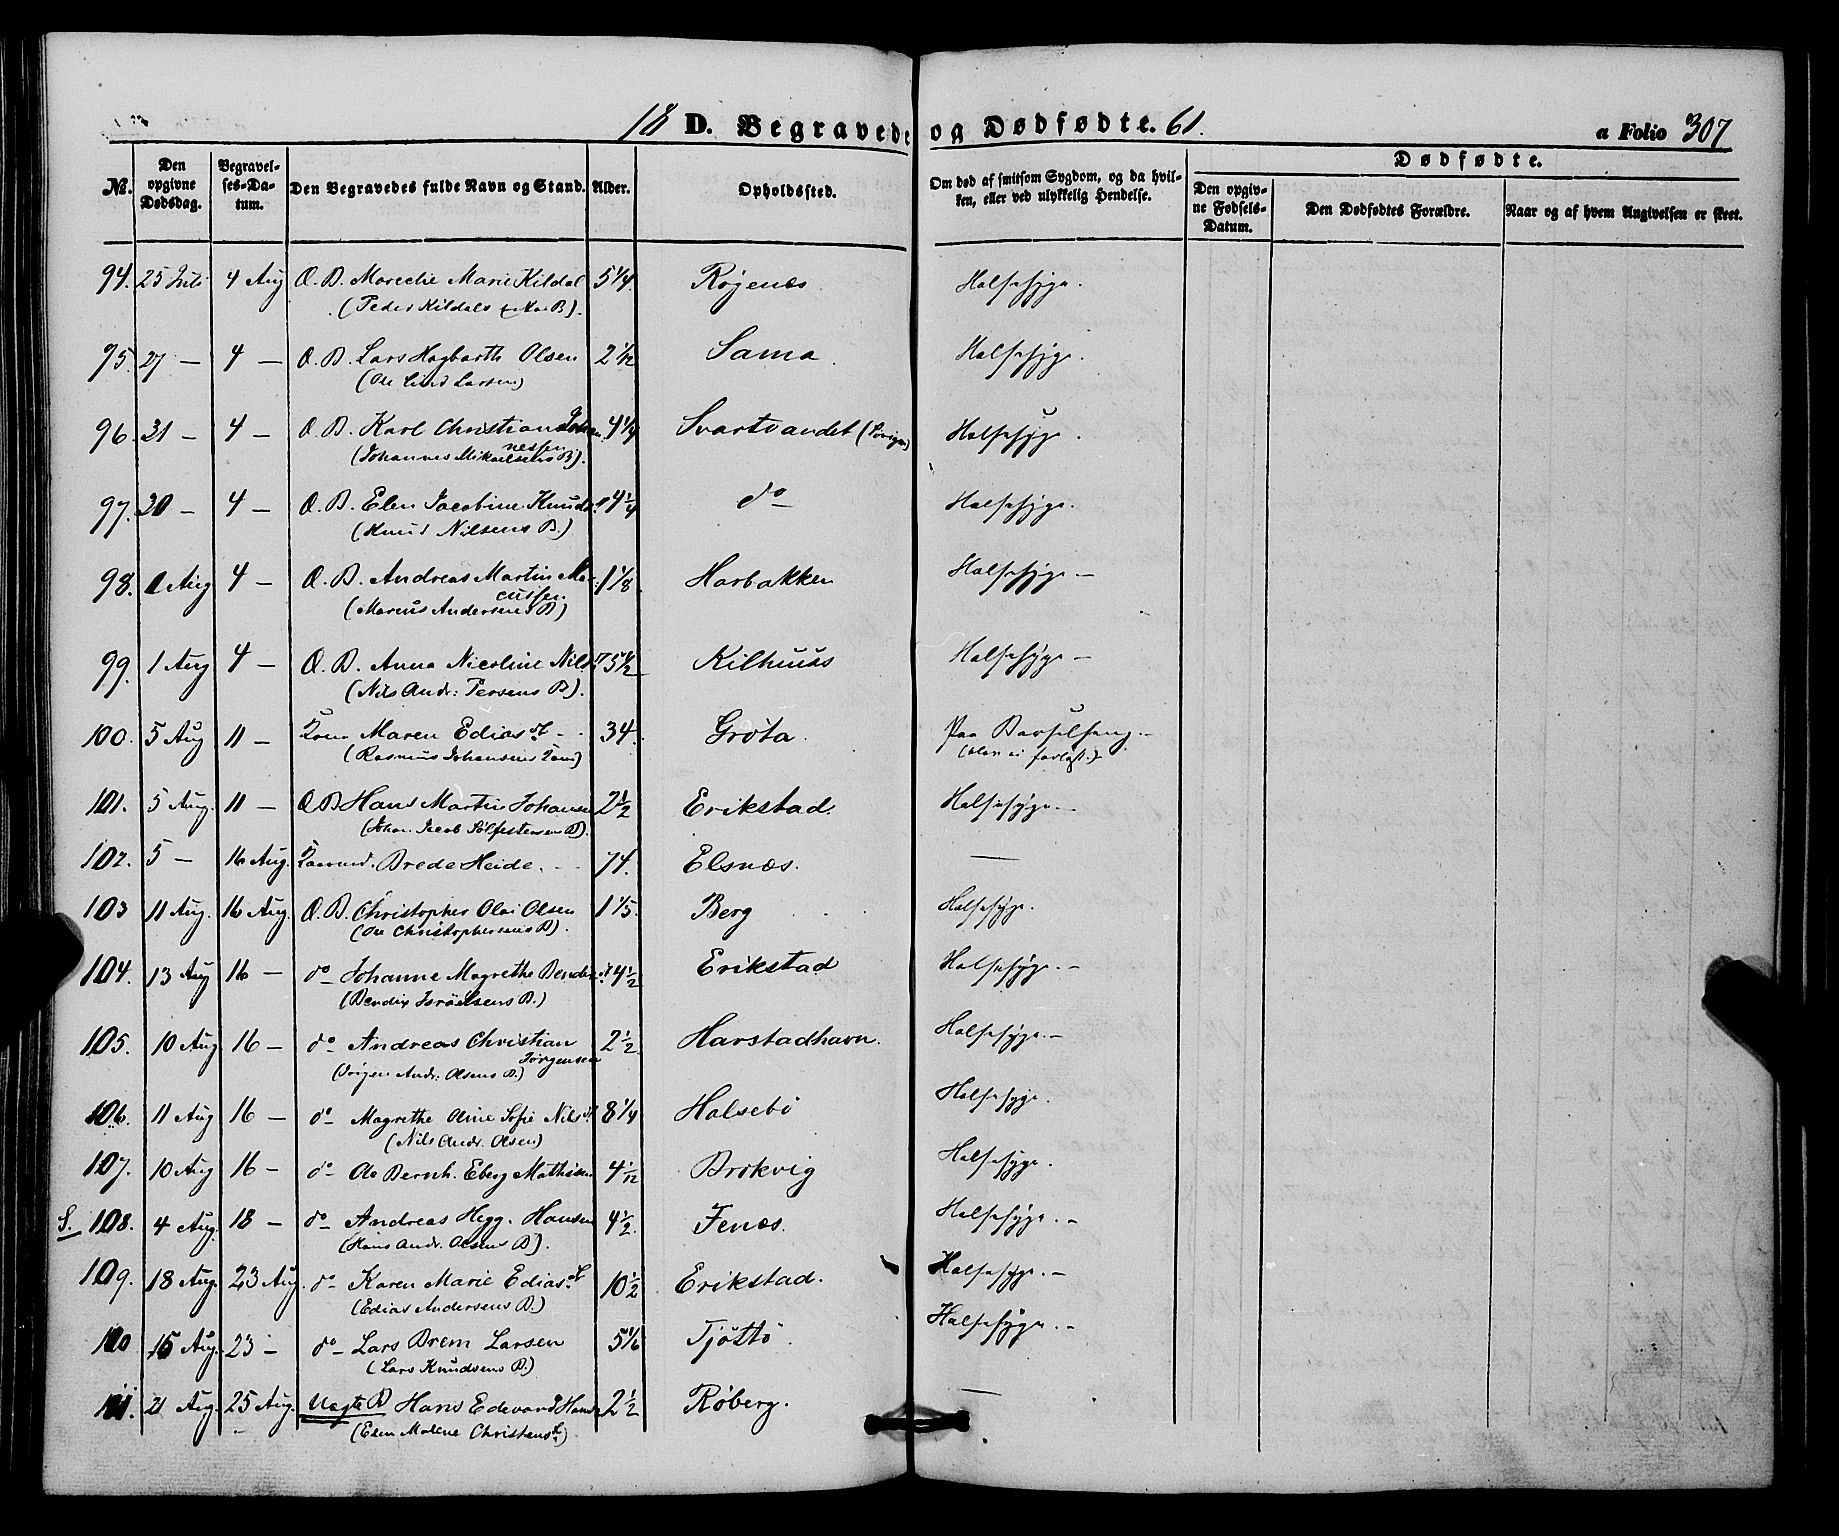 18 D. Begravede og Dødfødte. 61.
a Folio 307
No. Den opgivne Dødsdag. Begravelses-Datum. Den Begravedes fulde Navn og Stand. Alder. Opholdssted. Om død af smitsom Sygdom, og da hvilken, eller ved ulykkelig Hendelse. Dødfødte. Den opgivne Fødsels-Datum. Den Dødfødtes Forældre. Naar og af hvem Angivelsen er skeet.
94. 25 Juli 4 Aug Æ. B. Marie Kildal 5 1/4. Røgenæs. Halsesyge.
(Peder Kildals B).
95. 27 — 4 — Æ. B. Lars Hagbarth Olsen 2 1/12 Sama. Halsesyge.
(Ole Lind Larsen)
96. 31 — 4 — Æ. B. Karl Christian Johan 4 1/4 Svartvandet Halsesyge.
nessen
(Johannes Mikaelsens B).
97. 30 — 4 — Æ. B. Elen Jacobine Knuds 4 1/4 do — Halsesyge.
(Knud Nilsens B.)
98. 1 Aug 4 — Æ. B. Andreas Martin Mar 1 1/8 Harbakken Halsesyge —
cussen
(Marcus Andersens B)
99. 1 Aug 4 — Æ. B. Anna Nicoline Nilsd 5 1/2 Kilhuus Halsesyge —
(Nils Andr: Persens B).
100. 5 Aug 11 — Kone Maren Edias d. — 34. Grøta. Paa Barselseng. —
(Rasmus Johansens Kone)
101. 5 Aug. 11 — Æ B Hans Martin Johansen 2 1/2 Erikstad. Halsesyge. —
(Johan Jacob B).
102. 5 — 16 Aug. Brede Heide. 74. Elsnæs. —
103 11 Aug. 16 Aug. Æ. B. Christopher Olai Olsen 1 1/5. Berg Halsesyge.
(Ole Christophersens B).
104. 13 Aug 16 — do — Johanne Magrethe Bendix d. 4 1/2 Erikstad Halsesyge. —
(Bendix Israelsens B.)
105. 10 Aug 16 — do — Andreas Christian 2 1/2 Harstadhavn. Halsesyge. —
Jørgensen
(Jørgen Andr: Olsens B.)
106. 11 Aug 16 — do — Magrethe Oline Sofie Nils d. 8 1/4 Halsebø Halsesyge.
(Nils Andr. Olsen)
107. 10 Aug 16 — do — Ole Bernh. Eberg Mathisen 4 1/12 Brokvig Halsesyge.
S. 108. 4 Aug. 18 — do — Andreas Hegg. Hansen 4 1/2. Fenæs. Halsesyge. —
(Hans Andr. Olsens B).
109. 18 Aug. 23 Aug. do — Karen Marie Edias d. 10 1/2 Erikstad. Halsesyge. —
(Edias Andersens B.)
110 15 Aug. 23 — do — Lars Brem Larsen 5 1/6 Tjøttø. Halsesyge. —
(Lars Knudsens B.)
111. 21 Aug. 25 Aug. Uægte B Hans Edevard Hansen 2 1/2 Røberg. —
(Elen Malene Christens d.)